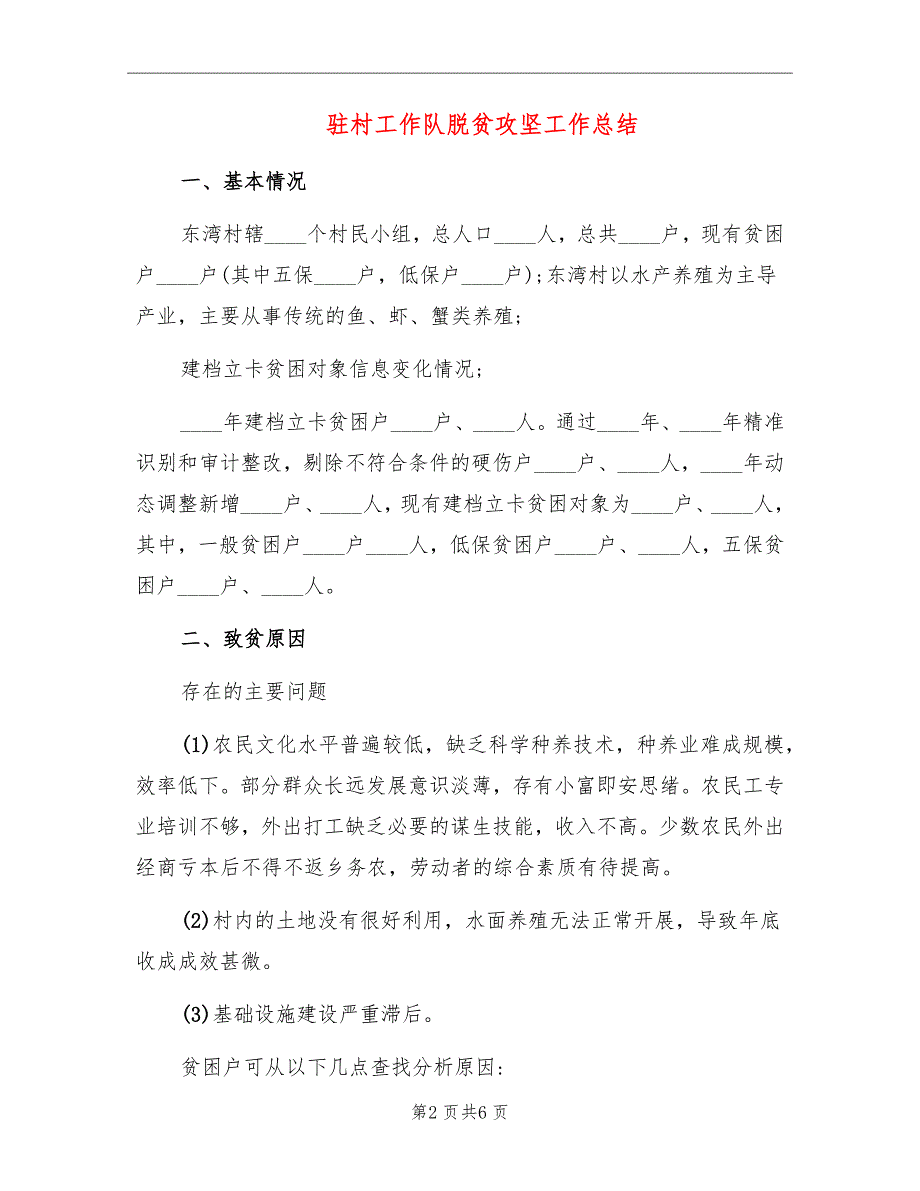 驻村工作队脱贫攻坚工作总结
一、基本情况
东湾村辖____个村民小组，总人口____人，总共____户，现有贫困
户____户(其中五保____户，低保户____户);东湾村以水产养殖为主导
产业，主要从事传统的鱼、虾、蟹类养殖;
建档立卡贫困对象信息变化情况;
____年建档立卡贫困户____户、____人。通过____年、____年精准
识别和审计整改，剔除不符合条件的硬伤户____户、____人，____年动
态调整新增____户、____人，现有建档立卡贫困对象为____户、____人，
其中，一般贫困户____户____人，低保贫困户____户、____人，五保贫
困户____户、____人。
二、致贫原因
存在的主要问题
(1)农民文化水平普遍较低，缺乏科学种养技术，种养业难成规模，
效率低下。部分群众长远发展意识淡薄，存有小富即安思绪。农民工专
业培训不够，外出打工缺乏必要的谋生技能，收入不高。少数农民外出
经商亏本后不得不返乡务农，劳动者的综合素质有待提高。
(2)村内的土地没有很好利用，水面养殖无法正常开展，导致年底
收成成效甚微。
(3)基础设施建设严重滞后。
贫困户可从以下几点查找分析原因:
第2 页共6 页